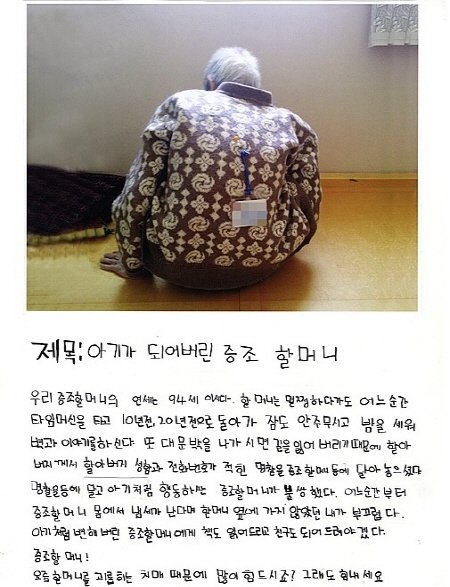 제목: 아기가 되어버린 증조 할머니
우리 증조할머니의 연세는 94세 이시다. 할머니는 멀쩡하다가도 어느순간
타임머신을 타고 10년전, 20년전으로 돌아가 잠도 안주무시고 밤을 세워
벽과 이야기를하신다. 또 대문밖을 나가시면 길을 잃어 버리기때문에 할아
버지께서 할아버지 성함과 전화번호가 적힌 명찰을 증조할머니 등에 달아 놓으셨다
명찰을등에 달고 아기처럼 행동하는 증조할머니가 불쌍했다. 어느순간부터
증조할머니 몸에서 냄새가 난다며 할머니 옆에 가지 않았던 내가 부끄럽다.
아기처럼 변해버린 증조할머니에게 책도 읽어드리고 친구도 되어 드려야겠다.
증조할머니!
요즘할머니를 괴롭히는 치매 때문에 많이 힘드시죠? 그래도 힘내세요